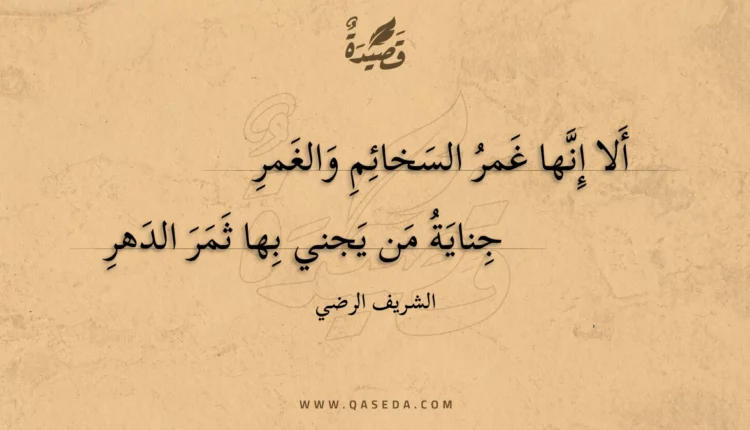 قَصِيدَةٌ
أَلا إِنَّها غَمرُ السَخائِمِ وَالغَمرِ
جِنايَةُ مَن يَجني بِها ثَمَرَ الدَهرِ
الشريف الرضي
WWW.QASEDA.COM